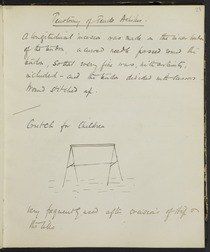 Tenotomy of Tendo Achilles.
A longitudinal incision was made on the inner border
of the tendon, a curved needle passed round the
tendon, so that every fibre was, with certainty,
included - and the tendon divided with scissors.
Wound stitched up.
Crutch for Children
Very frequently used after excision of Hip or
the like